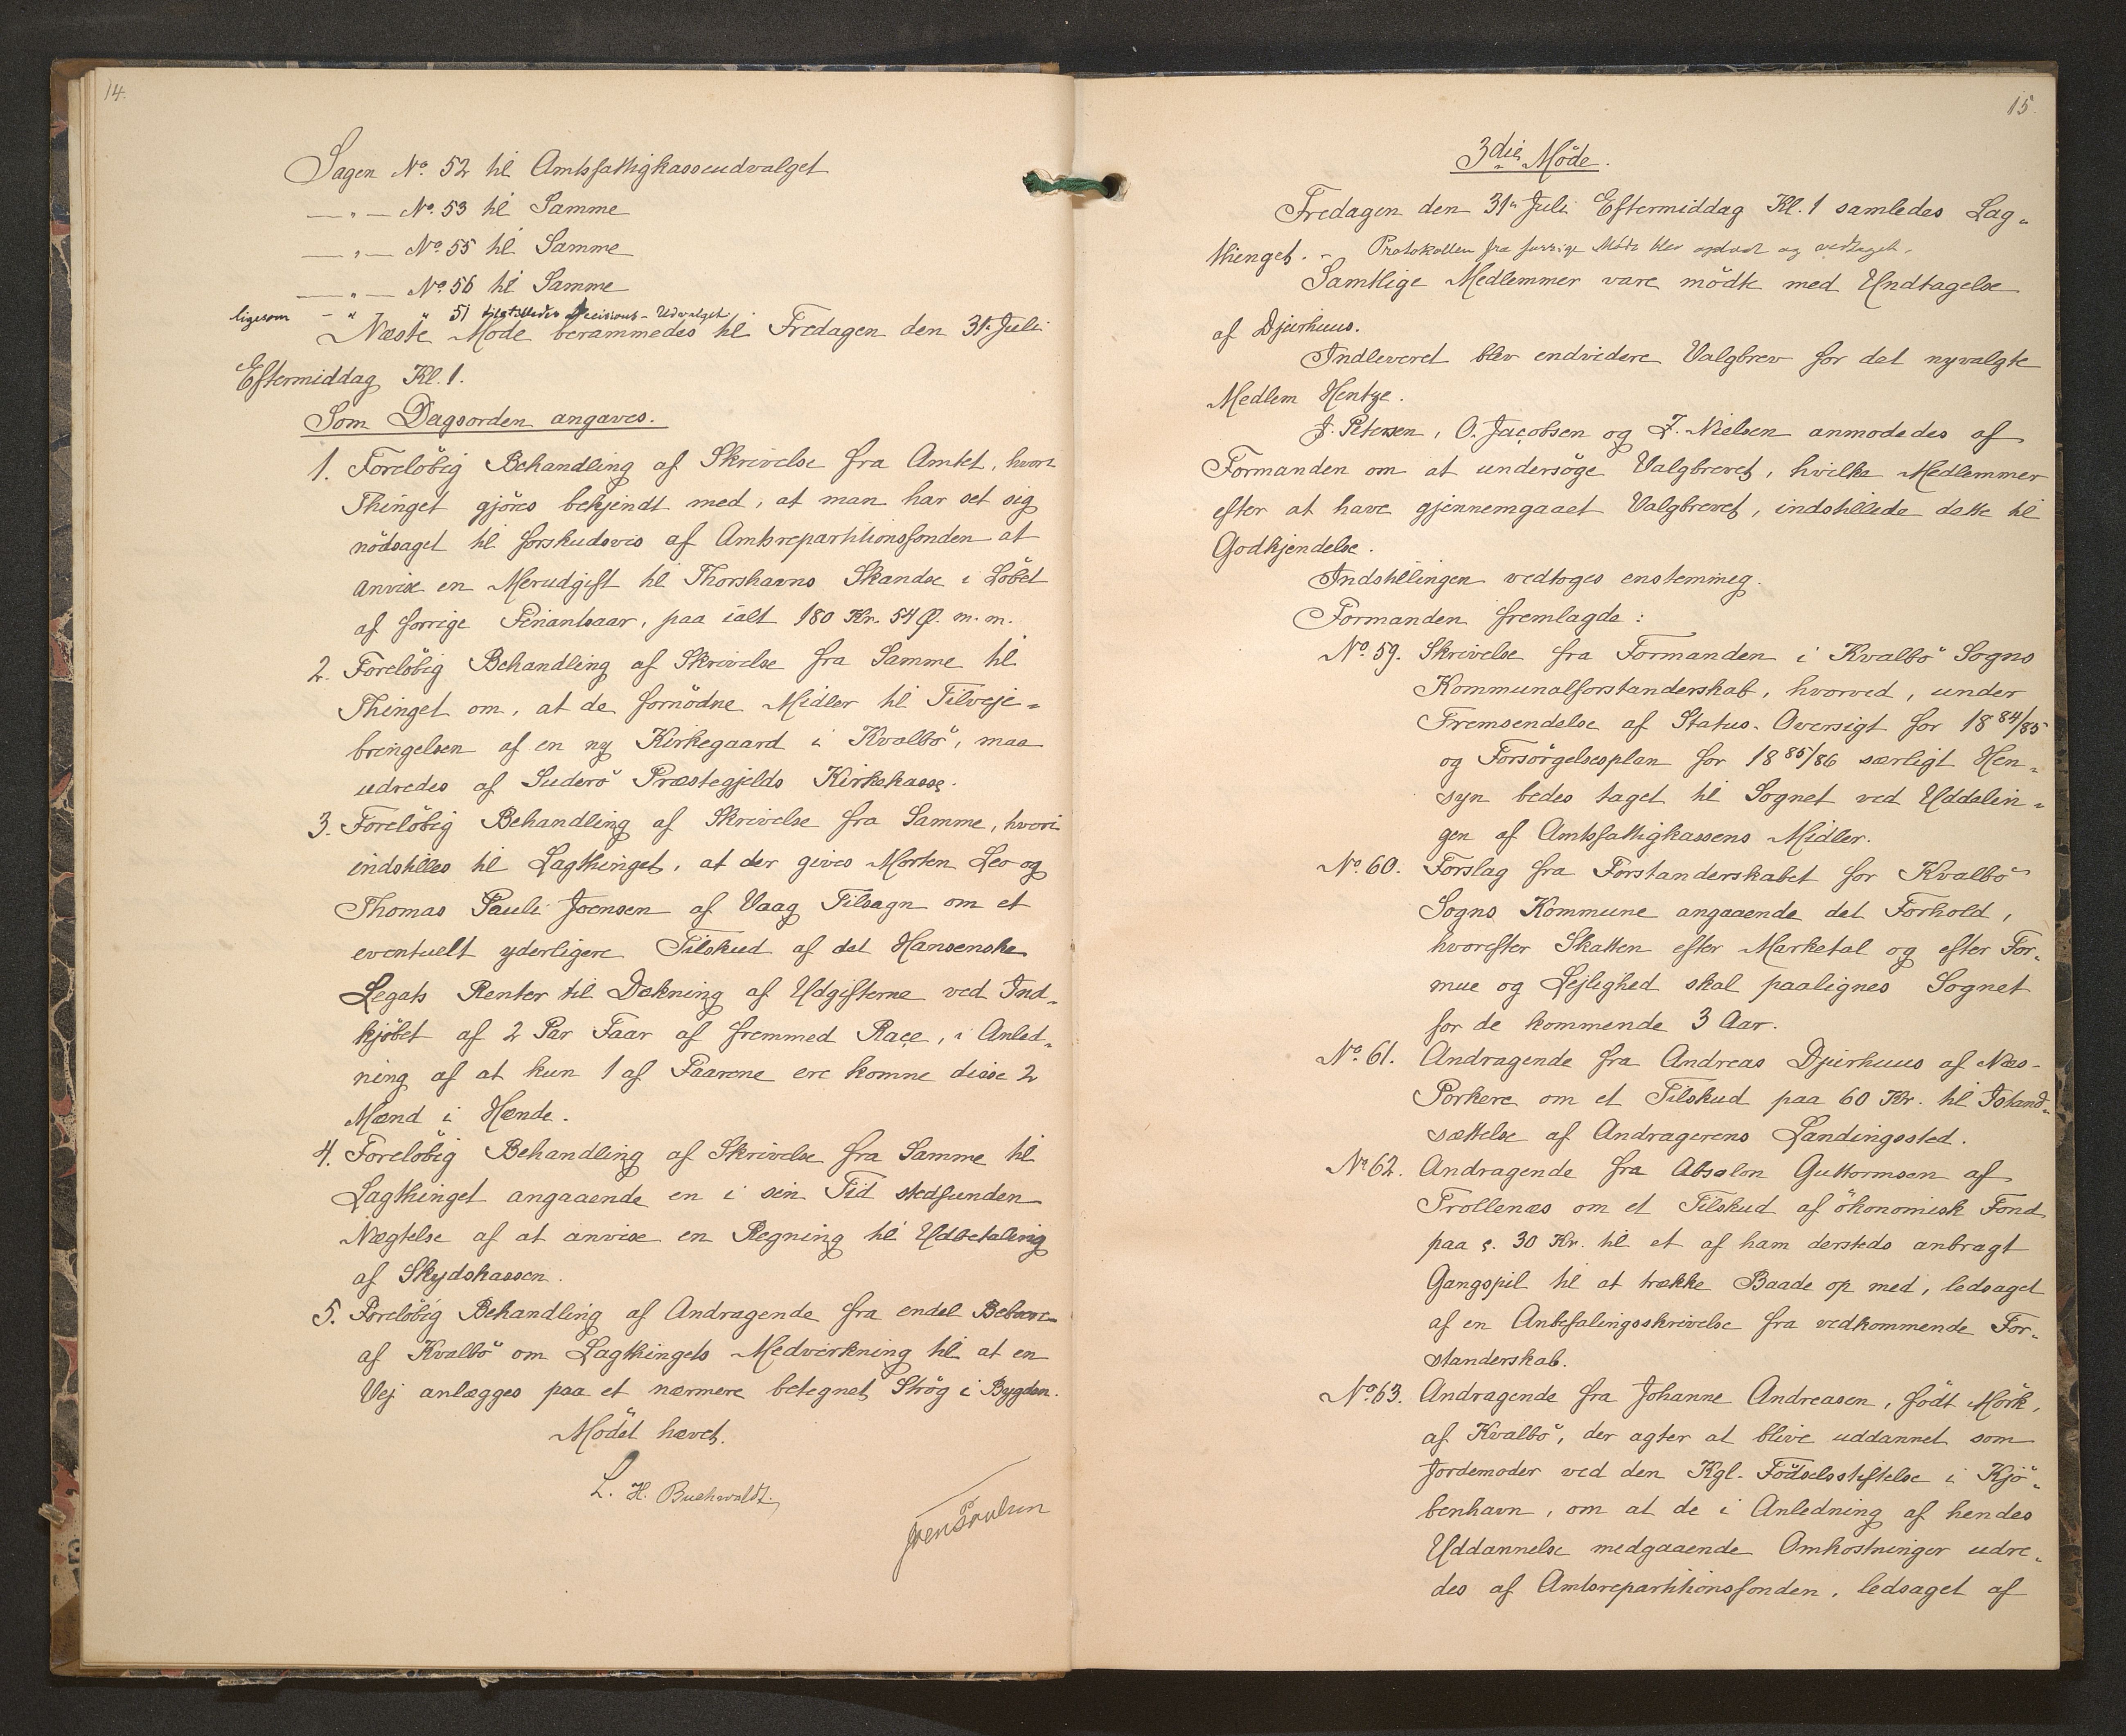 14.
Sagen No. 52 til Amtsfattigkasseudvalget
— " — No. 53 til Samme
— " — No. 55 til Samme
— " — No. 56 til Samme
ligesom — " 51 tilstilledes Decisions-Udvalget
Næste Möde berammedes til Fredagen den 31te Juli
Eftermiddag Kl. 1.
Som Dagsorden angaves.
1. Foreløbig Behandling af Skrivelse fra Amtet, hvori
Thinget gjöres bekjendt med, at man har set sig
nödsaget til forskudsvis af Amtsrepartitionsfonden at
anvise en Merudgift til Thorshavns Skandse i Löbet
af forrige Finantsaar, paa ialt 180 Kr. 54 Ø. m. m.
2. Forelöbig Behandling af Skrivelse fra Samme til
Thinget om, at de fornödne Midler til Tilveje=
bringelsen af en ny Kirkegaard i Kvalbö, maa
udredes af Suderö Præstegjelds Kirkekasse.
3. Forelöbig Behandling af Skrivelse fra Samme, hvori
indstilles til Lagthinget, at der gives Morten Leo og
Thomas Pauli Joensen af Vaag Tilsagn om et
eventuelt yderligere Tilskud af det Hansenske
Legats Renter til Dækning af Udgifterne ved Ind=
kjöbet af 2 Par Faar af fremmed Race, i Anled=
ning af at kun 1 af Faarene ere komne disse 2
Mænd i Hænde.
4. Forelöbig Behandling af Skrivelse fra Samme til
Lagthinget angaaende en i sin Tid stedfunden
Nægtelse af at anvise en Regning til Udbetaling
af Skydskassen.
5. Forelöbig Behandling af Andragende fra endel Beboere
af Kvalbö om Lagthingets Medvirkning til at en
Vej anlægges paa et nærmere betegnet Strög i Bygden.
Mödet hævet.
L. H. Buchwaldt.
Joen Poulsen
15.
3die Möde.
Fredagen den 31te Juli Eftermiddag Kl. 1 samledes Lag=
thinget. — Protokollen fra forrige Möde blev oplæst og vedtaget.
Samtlige Medlemmer vare mödte med Undtagelse
af Djurhuus.
Indleveret blev endvidere Valgbrev for det nyvalgte
Medlem Hentze.
J. Petersen, O. Jacobsen og Z. Nielsen anmodedes af
Formanden om at undersöge Valgbrevet, hvilke Medlemmer
efter at have gjennemgaaet Valgbrevet, indstillede dette til
Godkjendelse.
Indstillingen vedtoges enstemmig.
Formanden fremlagde:
No. 59. Skrivelse fra Formanden i Kvalbö Sogns
Kommunalforstanderskab, hvorved, under
Fremsendelse af Status-Oversigt for 1884/85
og Forsörgelsesplan for 1885/86 særligt Hen=
syn bedes taget til Sognet ved Uddelin=
gen af Amtsfattigkassens Midler.
No. 60. Forslag fra Forstanderskabet for Kvalbö
Sogns Kommune angaaende det Forhold,
hvorefter Skatten efter Marketal og efter For=
mue og Lejlighed skal paalignes Sognet
for de kommende 3 Aar.
No. 61. Andragende fra Andreas Djurhuus af Næs-
Porkere om et Tilskud paa 60 Kr. til Istand=
sættelse af Andragerens Landingssted.
No. 62. Andragende fra Absalon Guttormsen af
Trollenæs om et Tilskud af ökonomisk Fond
paa c. 30 Kr. til et af ham dersteds anbragt
Gangspil til at trække Baade op med, ledsaget
af en Anbefalingsskrivelse fra vedkommende For=
standerskab.
No. 63. Andragende fra Johanne Andreasen, född Mörk,
af Kvalbö, der agter at blive uddannet som
Jordemoder ved den Kgl. Födselsstiftelse i Kjö=
benhavn, om at de i Anledning af hendes
Uddannelse medgaaende Omkostninger udre=
des af Amtsrepartitionsfonden, ledsaget af